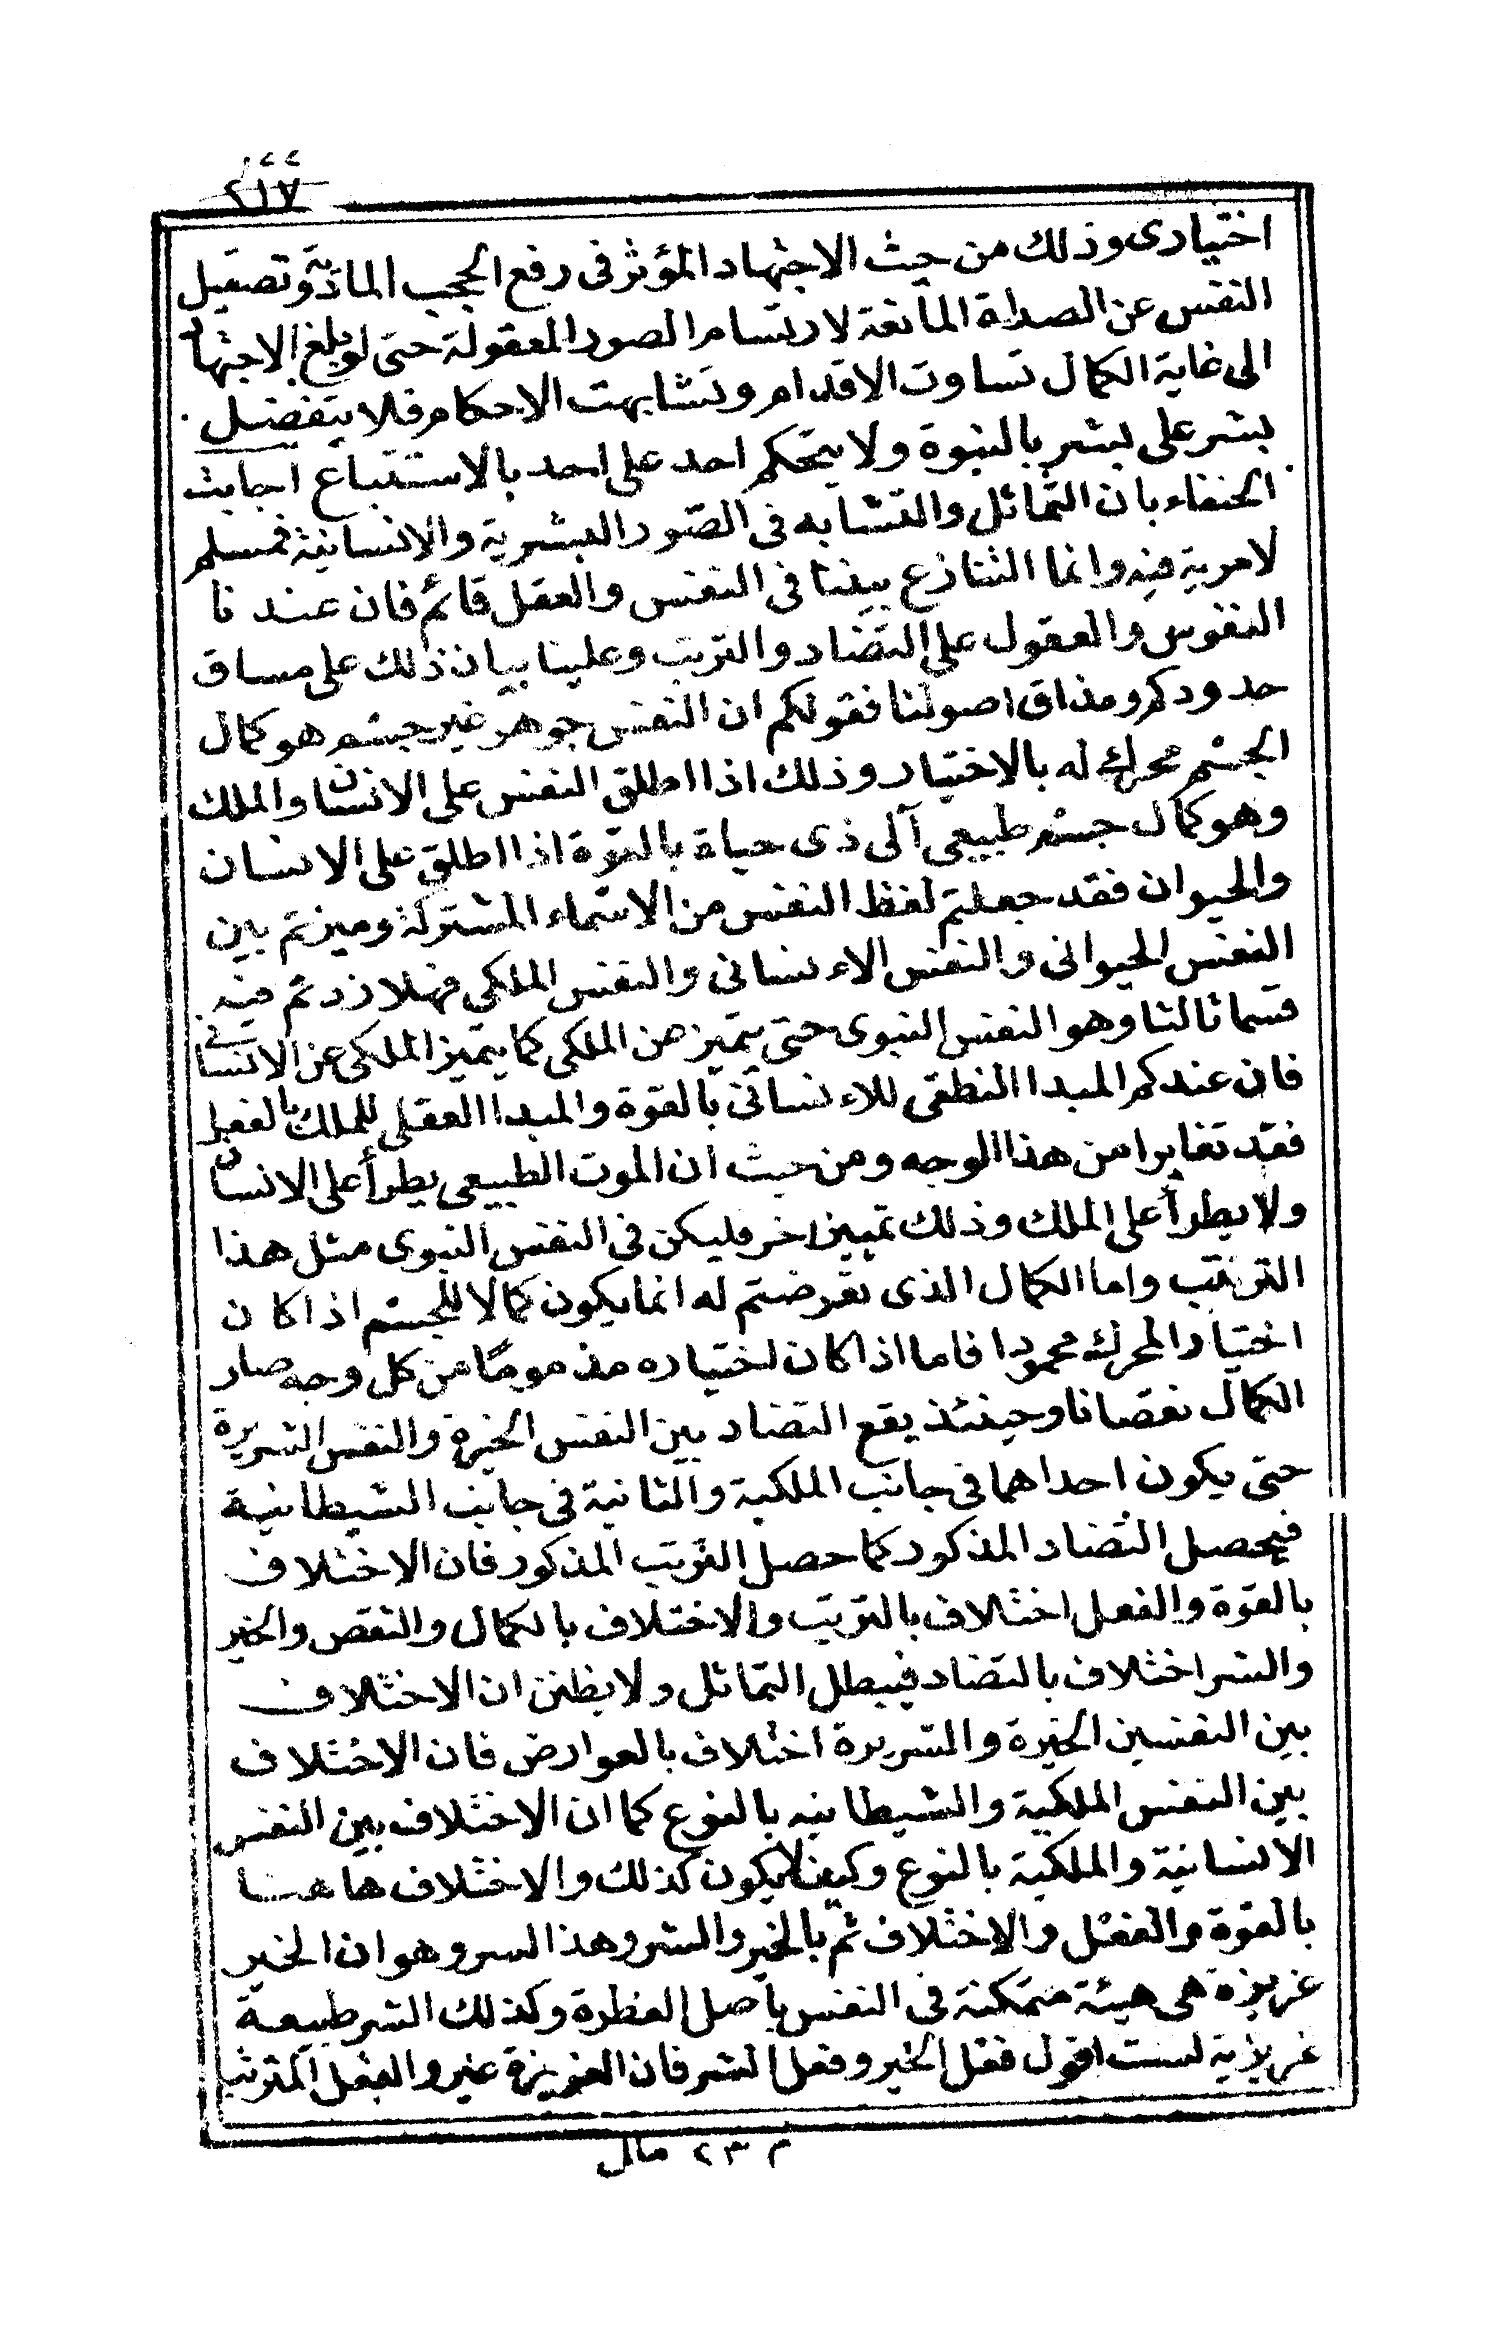 ٢١٧
اختيارى وذلك من حيث الاجتهاد المؤثر فى رفع الحجب المادّية وتصقيل
النفس عن الصداة المانعة لارتسام الصور المعقولة حتى لو بلغ الاجتهاد
الى غاية الكمال تساوت الاقدام وتشابهت الاحكام فلا يتفضل
بشر على بشر بالنبوة ولا يتحكم احد على احد بالاستتباع اجابت
الحنفاء بان التماثل والتشابه فى الصّور البشرية والانسانية فمسلم
لا مرية فيه وانما التنازع بيننا فى النفس والعقل قائم فان عند نا
النفوس والعقول على التضاد والترتب وعلينا بيان ذلك على مساق
حدودكم ومذاق اصولنا فقولكم ان النفس جوهر غير جسم هو كمال
الجسم محرك له بالاختيار وذلك اذا اطلق النفس على الانسان والملك
وهو كمال جسم طبيعى آلى ذى حياة بالقوّة اذا اطلق على الانسان
والحيوان فقد جعلتم لفظ النفس من الاسماء المشتركة وميزتم بين
النفس الحيوانى والنفس الاءنسانى والنفس الملكى فهلا زدتم فيه
قسما ثالثا وهو النفس النبوى حتى يتميز من الملكى كما يتميز الملكى عن الانسانى
فان عندكم المبدا النطقى للاءنسانى بالقوة والمبدا العقلى للملك بالفعل
فقد تغايرا من هذا الوجه ومن حيث ان الموت الطبيعى يطرأ على الانسان
ولا يطرأ على الملك وذلك تمييز اخر فليكن فى النفس النبوى مثل هذا
الترتب واما الكمال الذى تعرضتم له انما يكون كمالا للجسم اذا كان
اختيار المحرك محمودا فاما اذا كان اختياره مذموما من كل وجه صار
الكمال نقصانا وحينئذ يقع التضاد بين النفس الخيرة والنفس الشريرة
حتى يكون احداهما فى جانب الملكية والثانية فى جانب الشيطانية
فيحصل التضاد المذكور كما حصل الترتب المذكور فان الاختلاف
بالقوّة والفعل اختلاف بالترتب والاختلاف بالكمال والنقص والخير
والشر اختلاف بالتضاد فيبطل التماثل ولا يظنن ان الاختلاف
بين النفسين الخيرة والشريرة اختلاف بالعوارض فان الاختلاف
بين النفس الملكية والشيطانيه بالنوع كما ان الاختلاف بين النفس
الانسانية والملكية بالنوع وكيف لا يكون كذلك والاختلاف هاهنا
بالقوة والفعل والاختلاف ثم بالخير والشر وهذا السر وهو ان الخير
غريزة هى هيئة متمكنة فى النفس باصل الفطرة وكذلك الشر طبيعة
غريزية لست اقول فعل الخير وفعل الشر فان الغريزة غير والفعل المترتب
م ٢٣ ملل